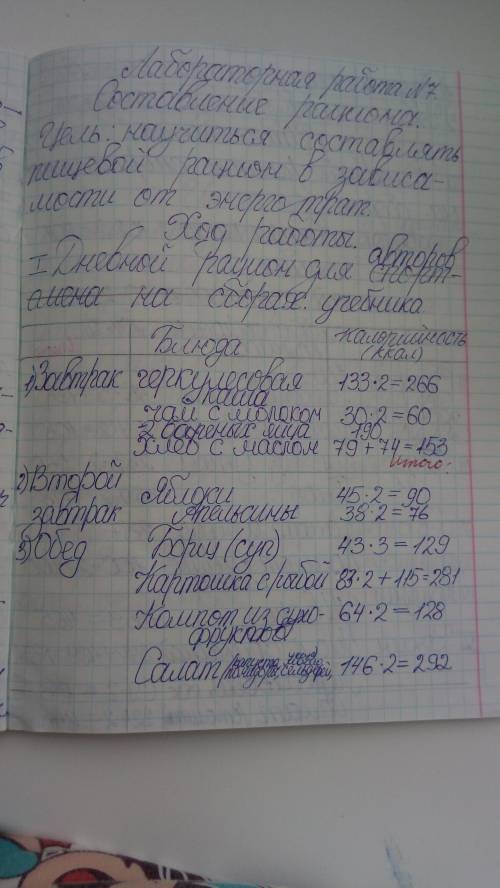 Лабораторная работа №7.
Составление рациона.
Цель: научиться составлять
пищевой рацион в зависи-
мости от энерготрат.
Ход работы.
авторов
I Дневной рацион для спорт-
смена на сборах. учебника
Блюда Калорийность (ккал)
1) Завтрак геркулесовая каша 133·2=266
чай с молоком 30·2=60
2 вареных яйца 190
Хлеб с маслом 79+74=153
Итого:
2) Второй завтрак Яблоки 45·2=90
Апельсины 38·2=76
3) Обед Борщ (суп) 43·3=129
Картошка с рыбой 83·2+115=281
Компот из сухо-
фруктов 64·2=128
Салат (капуста, 146·2=292